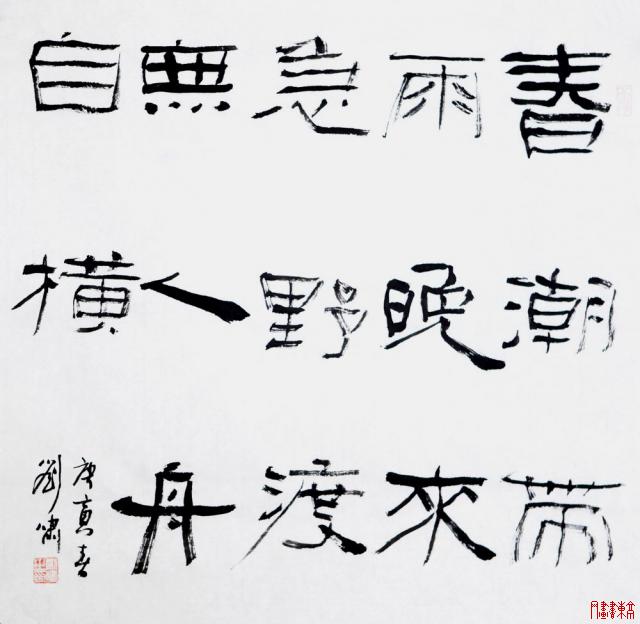 春潮带
雨晚来
急野渡
無人舟
自横
庚寅春
劉嘯